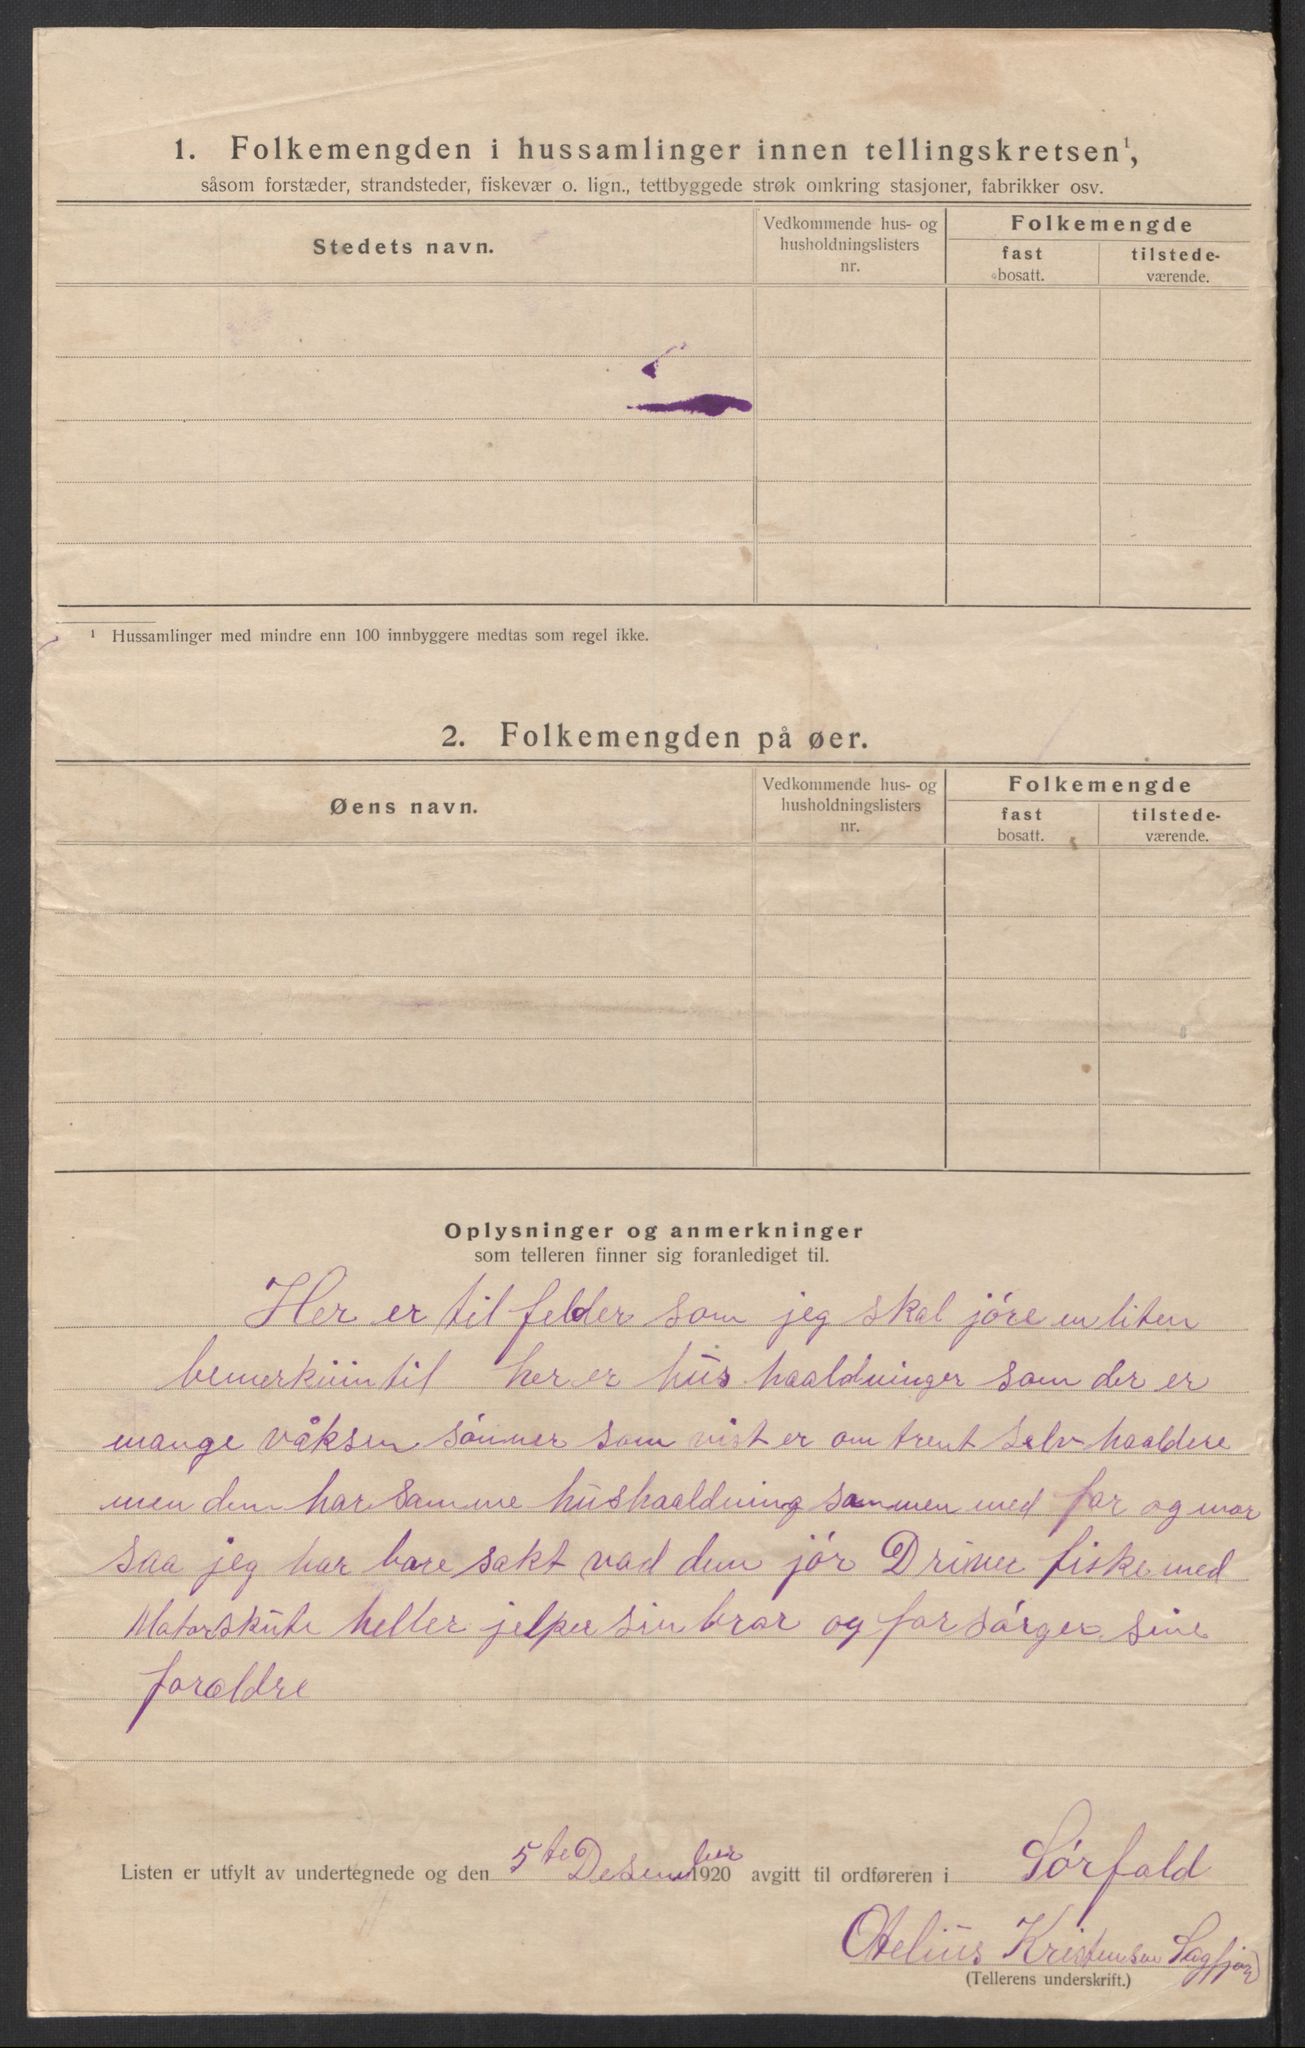 1. Folkemengden i hussamlinger innen tellingskretsen¹,
såsom forstæder, strandsteder, fiskevær o. lign., tettbyggede strøk omkring stasjoner, fabrikker osv.
Stedets navn.
Vedkommende hus- og
husholdningslisters
nr.
Folkemengde
fast
bosatt.
tilstede-
værende.
¹ Hussamlinger med mindre enn 100 innbyggere medtas som regel ikke.
2. Folkemengden på øer.
Øens navn.
Vedkommende hus- og
husholdningslisters
nr.
Folkemengde
fast
bosatt.
tilstede-
værende.
Oplysninger og anmerkninger
som telleren finner sig foranlediget til.
Her er til felder som jeg skal jöre en liten
til her er hus haaldninger som der er
mange våksen sönner som vist er om trent selv haaldere
men dem har samme hushaaldning sammen med far og mor
saa jeg har bare sakt vad dem jör Driver fiske med
Motorskute heller jelper sin bror og forsörger sine
forældre
Listen er utfylt av undertegnede og den 5te Desember 1920 avgitt til ordføreren i Sörfold
Otelius Kristensen Sagfjord
(Tellerens underskrift.)